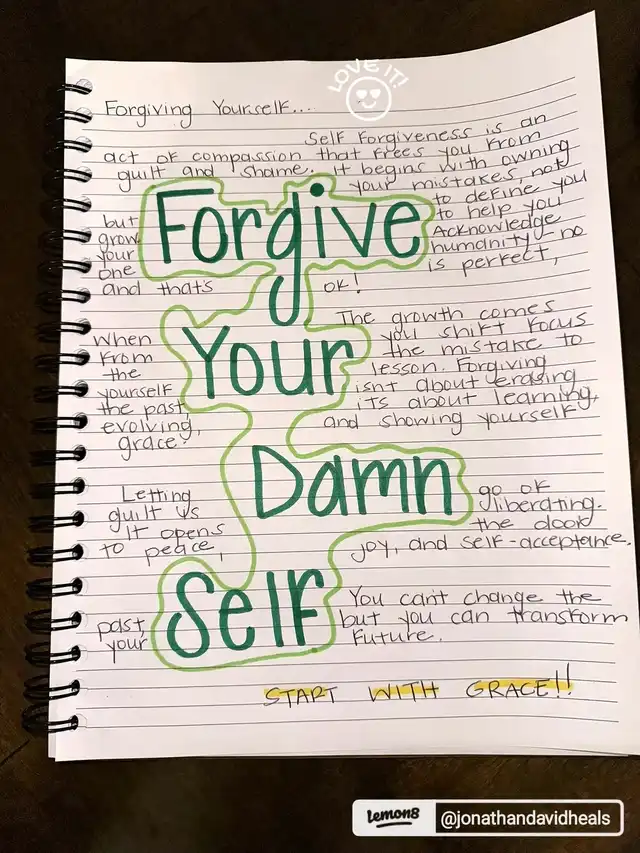 LOVE IT!
Forgiving Yourself...
Self Forgiveness is an
act of compassion that frees you from
guilt and shame. It begins with owning
your mistakes, not
to define you
but to help you
grow. Acknowledge
your humanity - no
one is perfect,
and that's ok!
Forgive
Your
Damn
Self
The growth comes
When you shift focus
from the mistake to
the lesson. Forgiving
yourself isn't about erasing
the past, its about learning,
evolving, and showing yourself
grace.
Letting go of
guilt is liberating.
It opens the door
to peace, joy, and self-acceptance.
You can't change the
past, but you can transform
your future.
START WITH GRACE!!
lemon8 @jonathandavidheals